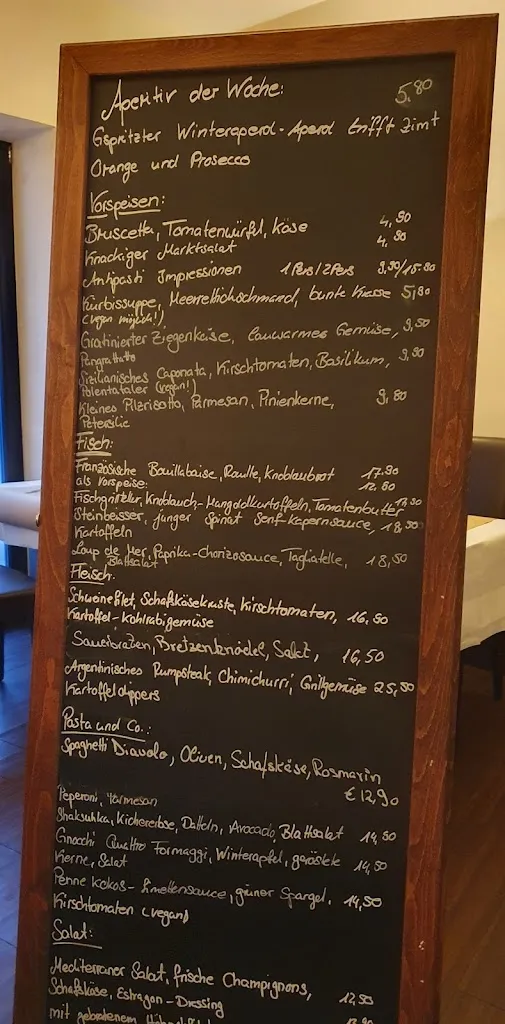 Aperitiv der Woche: 5,80
Gespritzter Winteraperol - Aperol trifft Zimt
Orange und Prosecco
Vorspeisen:
Bruscetta, Tomatenwürfel, Käse 4,90
Knackiger Marktsalat 4,90
Antipasti Impressionen 1 Pers/2 Pers 9,90/15.80
Kürbissuppe, Meerrettichschmand, bunte Kresse 5,80
(vegan möglich!)
Gratinierter Ziegenkäse, Lauwarmes Gemüse, 9,50
Pangrattato
Sizilianisches Caponata, Kirschtomaten, Basilikum, 9,90
Polentataler (vegan!)
Kleines Pilzrisotto, Parmesan, Pinienkerne, 9,80
Petersilie
Fisch:
Französische Bouillabaise, Rouille, Knoblaubrot 17.90
als Vorspeise: 12.80
Fischgriller, Knoblauch-Mangoldkartoffeln, Tomatenbutter 17,50
Steinbeisser, junger Spinat Senf-Kapernsauce, 18,50
Kartoffeln
Loup de Mer, Paprika-Chorizosauce, Tagliatelle, 18,50
Blattsalat
Fleisch:
Schweinefilet, Schafskäsekruste, Kirschtomaten, 16,90
Kartoffel-Kohlrabigemüse
Sauerbraten, Bretzenknödel, Salat, 16,50
Argentinisches Rumpsteak, Chimichurri, Grillgemüse 25,50
Kartoffeldippers
Pasta und Co.:
Spaghetti Diavolo, Oliven, Schafskäse, Rosmarin
€ 12,90
Peperoni, Parmesan
Shaksuhka, Kichererbse, Datteln, Avocado, Blattsalat 14,50
Gnocchi Quattro Formaggi, Winterapfel, geröstete 14,50
Kerne, Salat
Penne Kokos-Limettensauce, grüner Spargel, 14,50
Kirschtomaten (vegan)
Salat:
Mediterraner Salat, frische Champignons,
Schafskäse, Estragon-Dressing 12,50
mit gebratenem